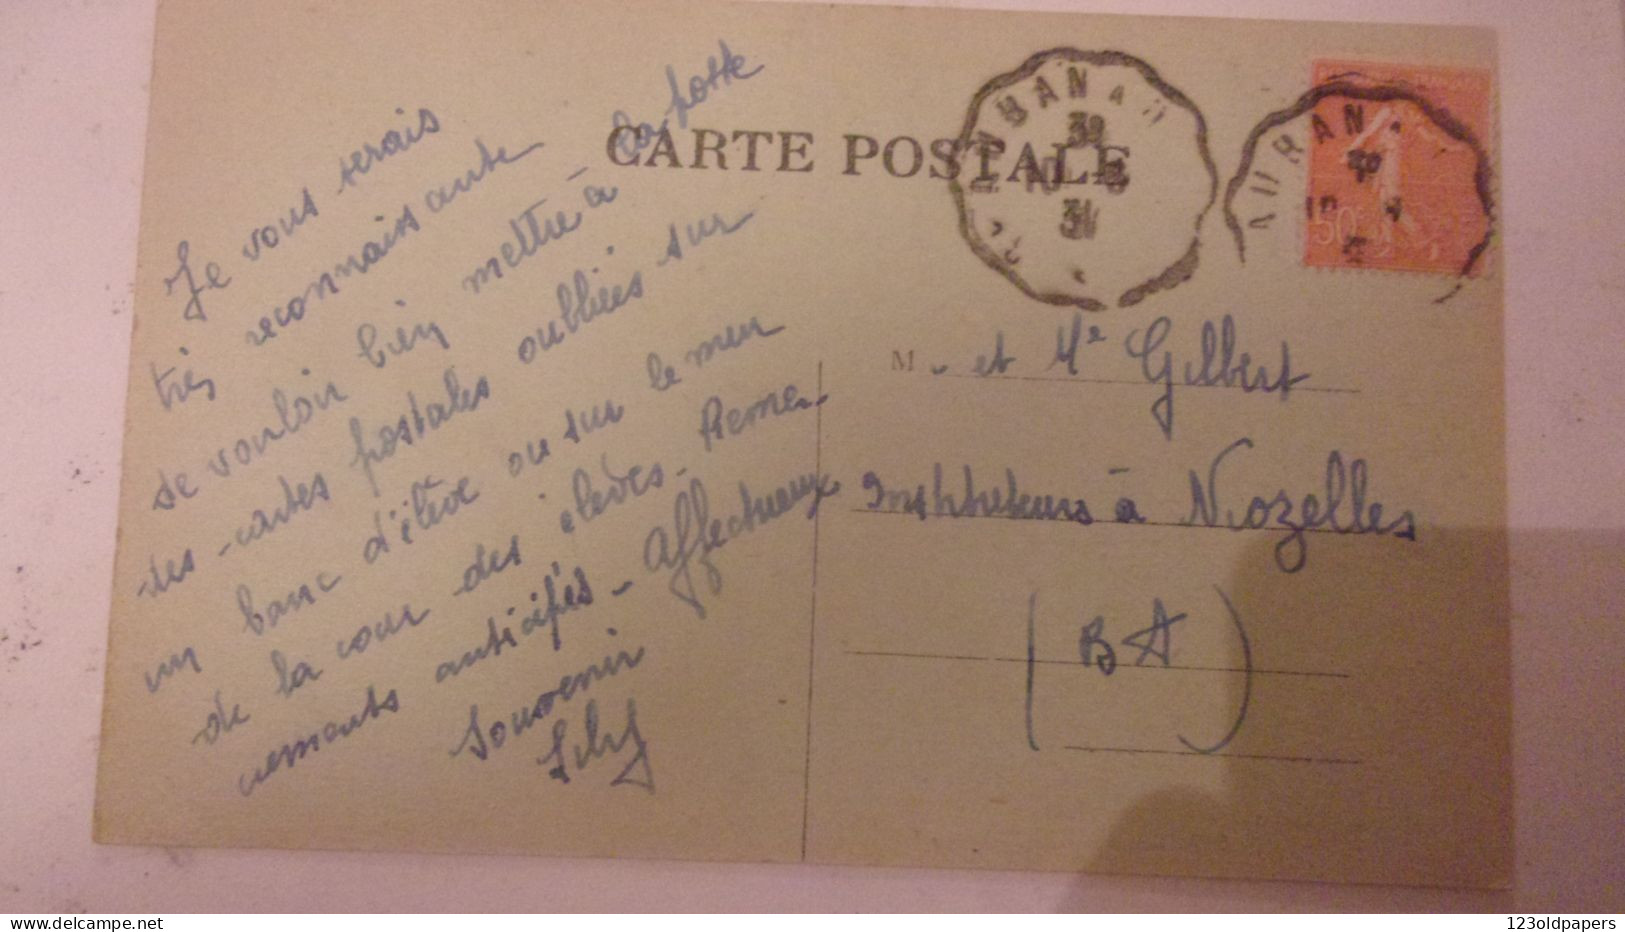 CARTE POSTALE
Je vous serais
très reconnaissante
de vouloir bien mettre à la poste
des cartes postales oubliées sur
un banc d'élève ou sur le mur
de la cour des élèves. Remer-
ciements anticipés. Affectueux
Souvenir
31
50c
M. et Me Gilbert
Instituteurs à Niozelles
(BA)
123oldpapers